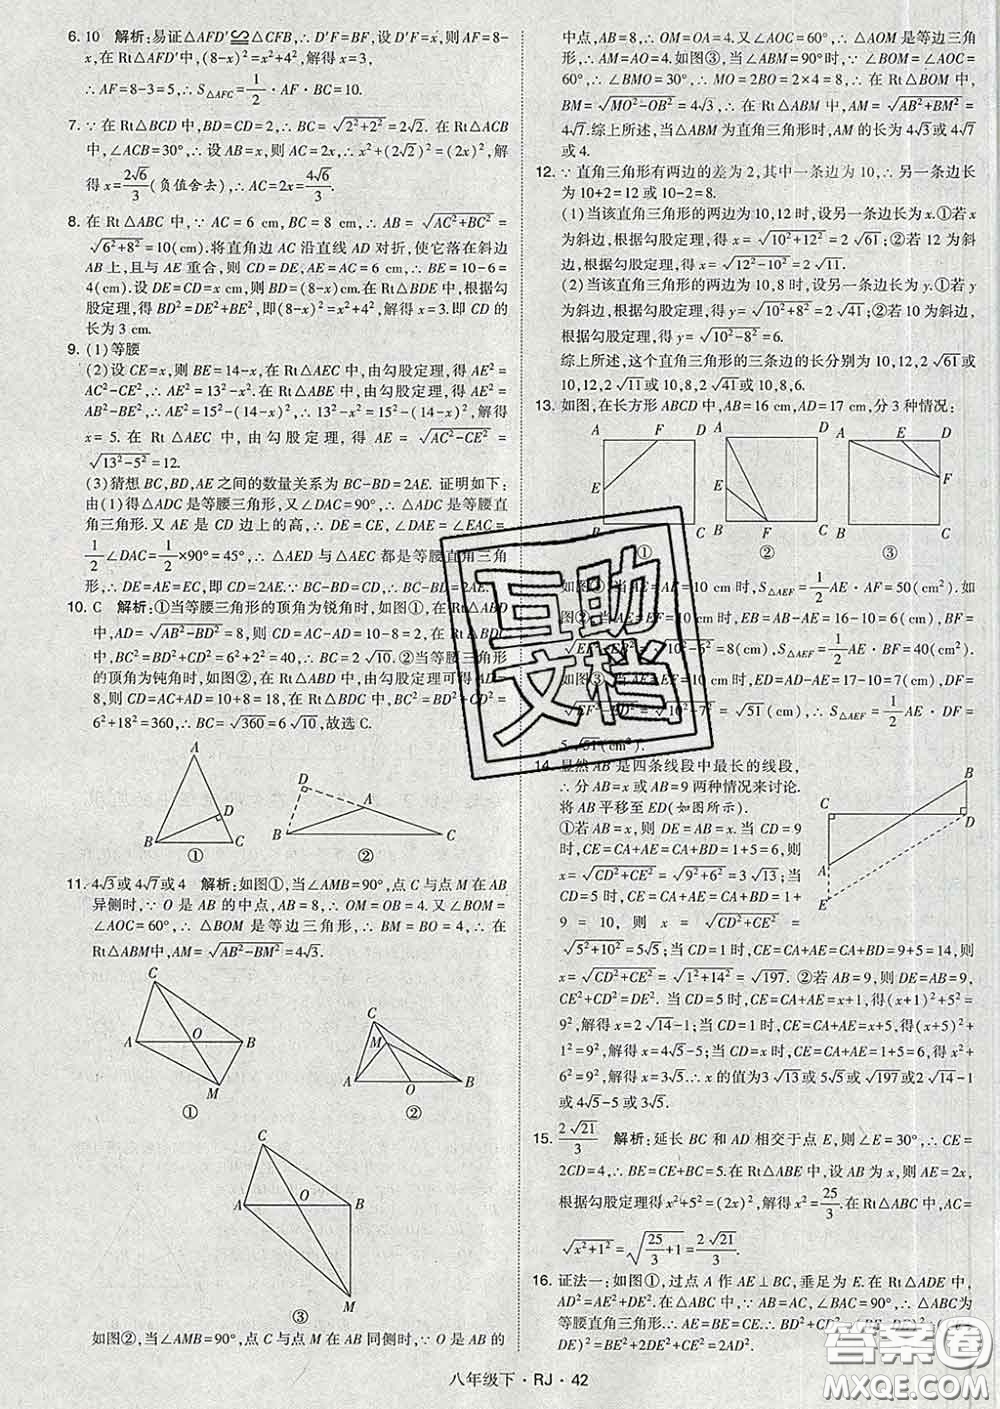 6. 10 解析:易证△AFD'≌△CFB,∴D'F=BF,设D'F=x,则AF=8-
x,在Rt△AFD'中,(8-x)²=x²+4²,解得x=3,
∴AF=8-3=5,∴S△AFC=1/2·AF·BC=10.
7. ∵在Rt△BCD中,BD=CD=2,∴BC=√(2²+2²)=2√2.在Rt△ACB
中,∠ACB=30°,∴设AB=x,则AC=2x,∴x²+(2√2)²=(2x)²,解
得x=2√6/3(负值舍去),∴AC=2x=4√6/3.
8. 在Rt△ABC中,∵AC=6 cm,BC=8 cm,∴AB=√(AC²+BC²)=
√(6²+8²)=10(cm).将直角边AC沿直线AD对折,使它落在斜边
AB上,且与AE重合,则CD=DE,AE=AC=6 cm,∴BE=10-6=
4(cm).设DE=CD=x cm,则BD=(8-x)cm.在Rt△BDE中,根据勾
股定理,得BD²=DE²+BE²,即(8-x)²=x²+4²,解得x=3.即CD的
长为3 cm.
9. (1)等腰
(2)设CE=x,则BE=14-x,在Rt△AEC中,由勾股定理,得AE²=
AC²-CE²,∴AE²=13²-x².在Rt△ABE中,由勾股定理,得AE²=
AB²-BE²,∴AE²=15²-(14-x)²,∴13²-x²=15²-(14-x)²,解得
x=5.在Rt△AEC中,由勾股定理,得AE=√(AC²-CE²)=
√(13²-5²)=12.
(3)猜想BC,BD,AE之间的数量关系为BC-BD=2AE.证明如下:
由(1)得△ADC是等腰三角形,又∵∠DAC=90°,∴△DAC是等腰直
角三角形.又AE是CD边上的高,∴DE=CE,∠DAE=∠EAC=
1/2∠DAC=1/2×90°=45°,∴△AED与△AEC都是等腰直角三角
形,∴DE=AE=EC,即CD=2AE.∵BC-BD=CD,∴BC-BD=2AE.
10. C 解析:①当等腰三角形的顶角为锐角时,如图①,在Rt△ABD
中,AD=√(AB²-BD²)=8,则CD=AC-AD=10-8=2,在Rt△BDC
中,BC²=BD²+CD²=6²+2²=40,∴BC=2√10.②当等腰三角形
的顶角为钝角时,如图②,在Rt△ABD中,由勾股定理可得AD=
8,则CD=AC+AD=10+8=18,在Rt△BDC中,BC²=BD²+CD²=
6²+18²=360,∴BC=√360=6√10,故选C.
A
D
B
C
①
D
A
B
C
②
11. 4√3或4√7或4 解析:如图①,当∠AMB=90°,点C与点M在AB
异侧时,∵O是AB的中点,AB=8,∴OM=OB=4.又∠BOM=
∠AOC=60°,∴△BOM是等边三角形,∴BM=BO=4,∴在
Rt△ABM中,AM=√(AB²-BM²)=4√3.
C
A
O
B
M
①
C
M
A
O
B
②
C
A
O
B
M
③
如图②,当∠AMB=90°,点C与点M在AB同侧时,∵O是AB的
中点,AB=8,∴OM=OA=4.又∠AOC=60°,∴△AOM是等边三角
形,∴AM=AO=4.如图③,当∠ABM=90°时,∵∠BOM=∠AOC=
60°,∴∠BMO=30°,∴MO=2BO=2×4=8,∴在Rt△BOM中,
BM=√(MO²-OB²)=4√3,∴在Rt△ABM中,AM=√(AB²+BM²)=
4√7.综上所述,当△ABM为直角三角形时,AM的长为4√3或4√7
或4.
12. ∵直角三角形有两边的差为2,其中一条边为10,∴另一条边长
为10+2=12或10-2=8.
(1)当该直角三角形的两边为10,12时,设另一条边长为x.①若x
为斜边,根据勾股定理,得x=√(10²+12²)=2√61;②若12为斜
边,根据勾股定理,得x=√(12²-10²)=2√11.
(2)当该直角三角形的两边为10,8时,设另一条边长为y.①若y
为斜边,根据勾股定理,得y=√(10²+8²)=2√41;②若10为斜边,
根据勾股定理,得y=√(10²-8²)=6.
综上所述,这个直角三角形的三条边的长分别为10,12,2√61或
10,12,2√11或10,8,2√41或10,8,6.
13. 如图,在长方形ABCD中,AB=16 cm,AD=17 cm,分3种情况:
A
F
D
E
B
C
①
A
D
E
B
F
C
②
A
E
D
F
B
C
③
如图①,当AE=AF=10 cm时,S△AEF=1/2AE·AF=50(cm²).
如图②,当AE=EF=10 cm时,BE=16-10=6(cm),BF=
√(EF²-BE²)=√(10²-6²)=8(cm),∴S△AEF=1/2AE·BF=40(cm²).
如图③,当AE=EF=10 cm时,DE=AD-AE=17-10=7(cm),DF=
√(EF²-ED²)=√(10²-7²)=√51(cm),∴S△AEF=1/2AE·DF=
5√51(cm²).
14. 显然AB是四条线段中最长的线段,
∴分AB=x或AB=9两种情况来讨论.
将AB平移至ED(如图所示).
①若AB=x,则DE=AB=x.当CD=9
时,CE=CA+AE=CA+BD=1+5=6,则
x=√(CD²+CE²)=√(9²+6²)=3√13;当CD=
5时,CE=CA+AE=CA+BD=1+
9=10,则x=√(CD²+CE²)=
√(5²+10²)=5√5;当CD=1时,CE=CA+AE=CA+BD=9+5=14,则
x=√(CD²+CE²)=√(1²+14²)=√197.②若AB=9,则DE=AB=9,
CE²+CD²=DE².当CD=5时,CE=CA+AE=x+1,得(x+1)²+5²=
9²,解得x=2√14-1;当CD=1时,CE=CA+AE=x+5,得(x+5)²+
1²=9²,解得x=4√5-5;当CD=x时,CE=CA+AE=1+5=6,得x²+
6²=9²,解得x=3√5.∴x的值为3√13或5√5或√197或2√14-1
或4√5-5或3√5.
B
C
D
A
E
15. 2√21/3 解析:延长BC和AD相交于点E,则∠E=30°,∴CE=
2CD=4,∴BE=CE+BC=5.在Rt△ABE中,设AB为x,则AE=2x,
根据勾股定理得x²+5²=(2x)²,解得x²=25/3.在Rt△ABC中,AC=
√(x²+1²)=√(25/3+1)=2√21/3.
16. 证法一:如图①,过点A作AE⊥BC,垂足为E.在Rt△ADE中,
AD²=AE²+DE².∵AB=AC,∠BAC=90°,∴△ABC为
等腰直角三角形,∴AE=BE=CE.∴BD²+CD²=
DE)²=BE²+CE²+2DE²=2AE²+2DE²=2AD².
八年级下·RJ·42
互助
文档
答案圈
MXQE.COM